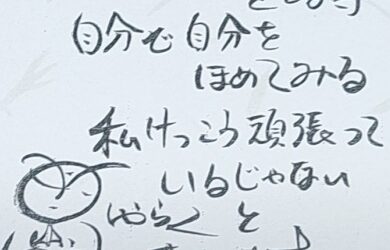 自分で自分を
ほめてみる
私けっこう頑張って
いるじゃない
と